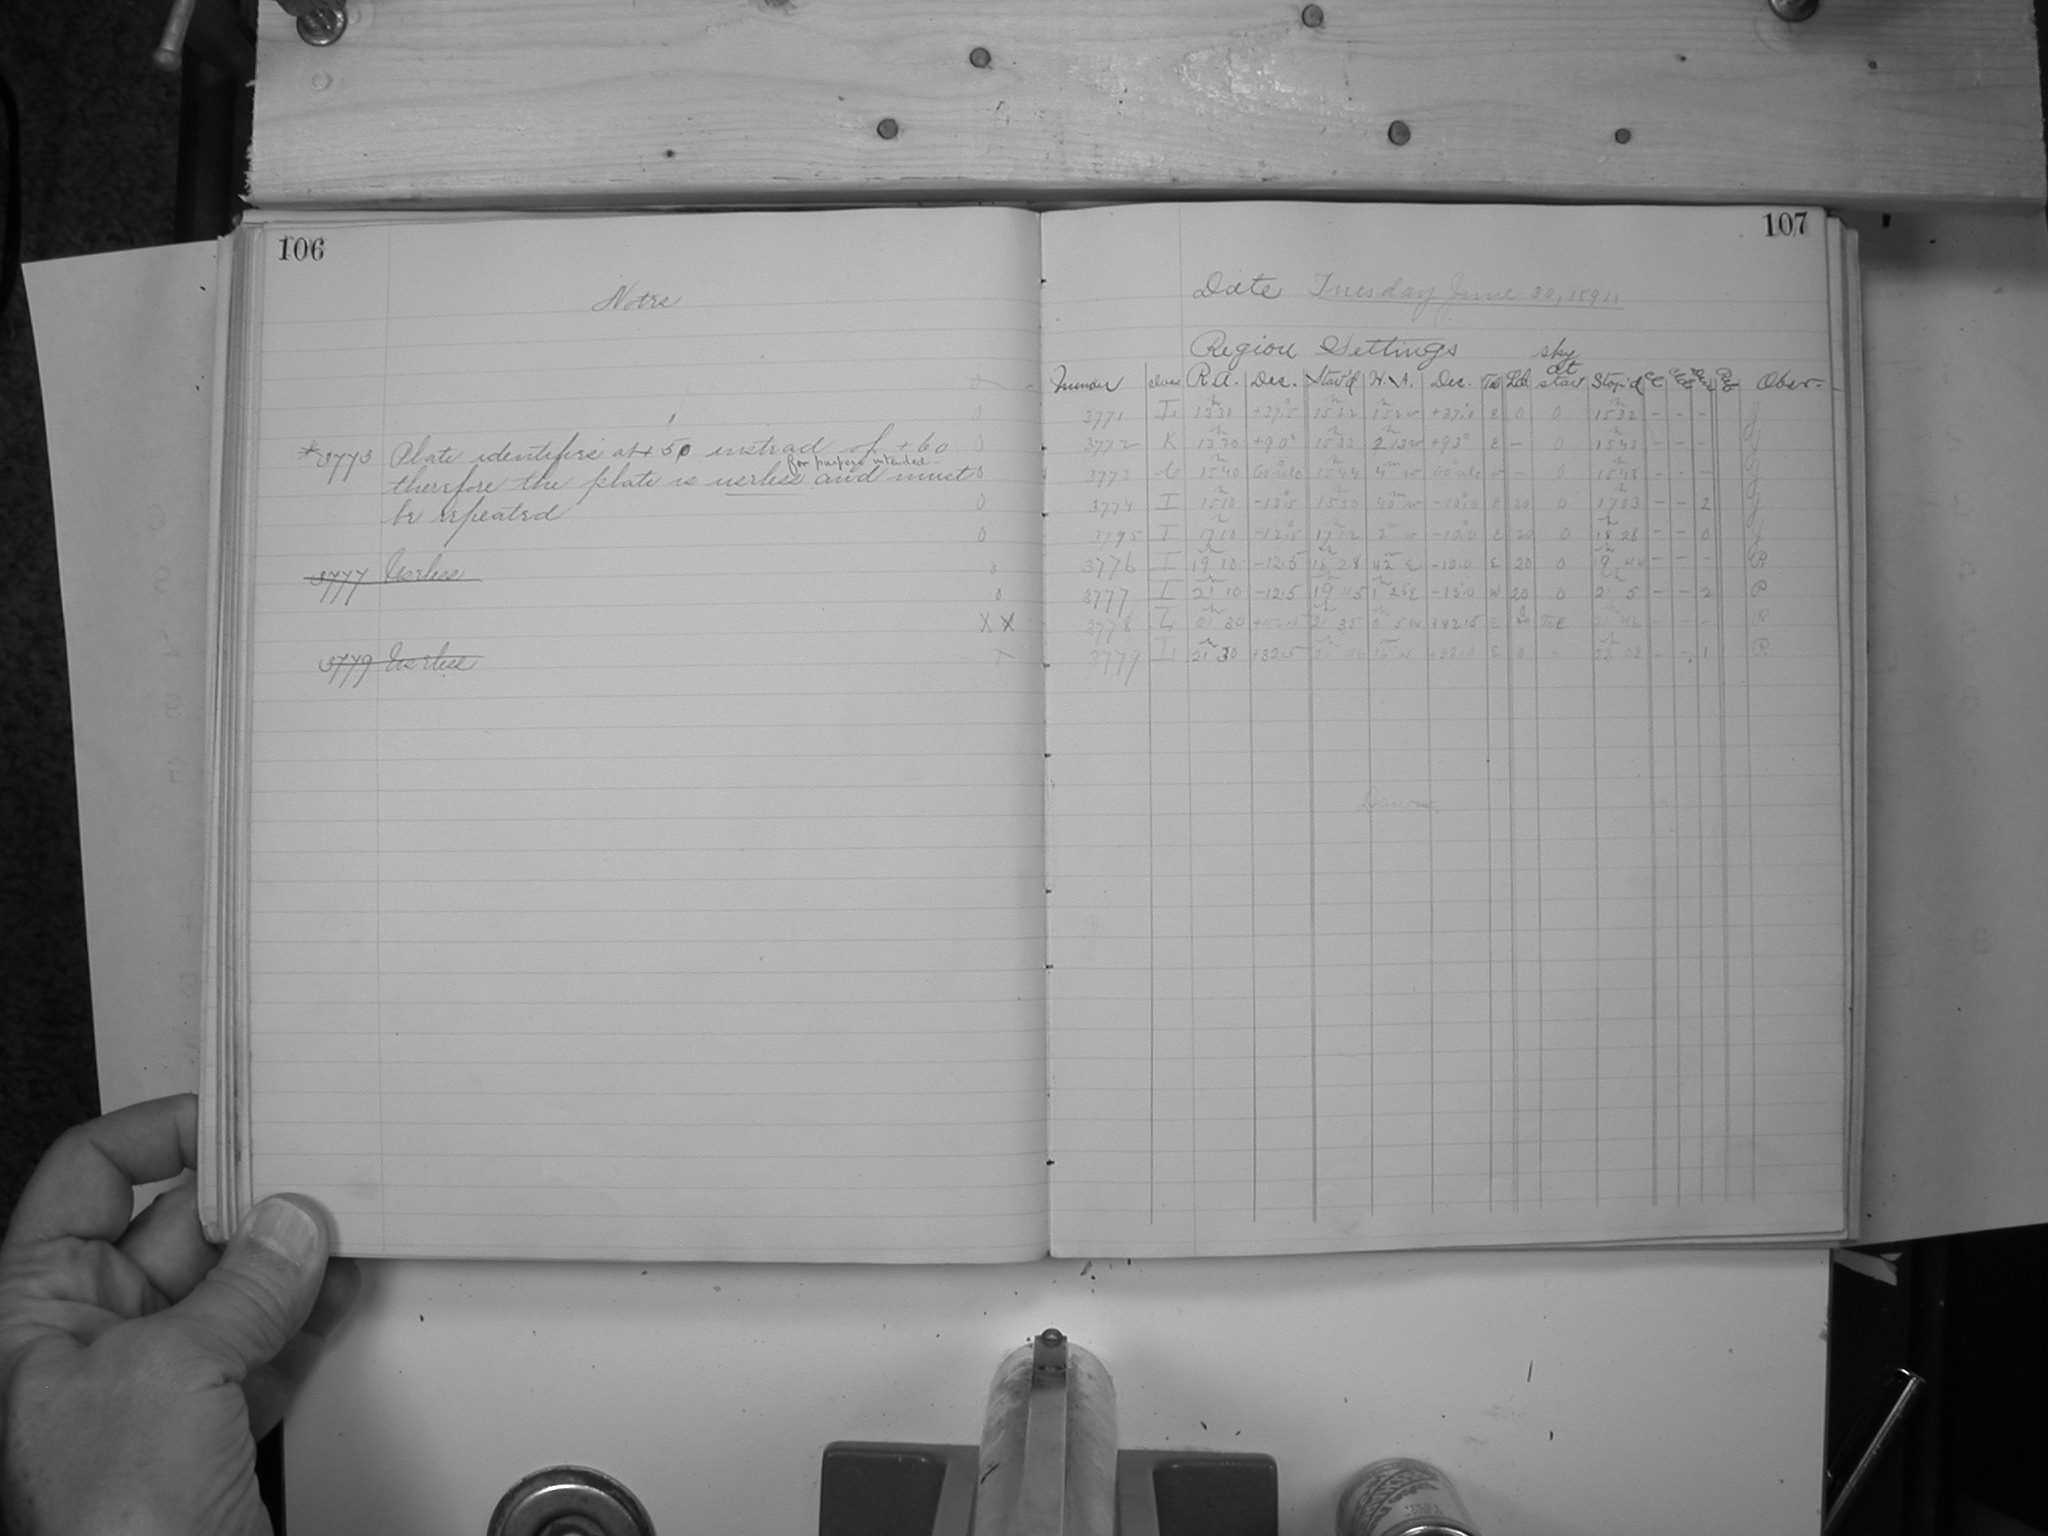 106
Notes
*3773 Plate identifies at +50 instead of +60
for purpose intended
therefore the plate is useless and must
be repeated
3777 Useless
3779 Useless
107
Date Tuesday June 30, 1891.
Region Settings sky at
Number class R.A. Dec. Star'd H.A. Dec. start Stop'd Obser.
3771 +37.5 15 32 +37.0 E 0 0 15 32 - - - J
3772 K 13 20 +90° 15 33 2 13 w +93° E - 0 15 43 - - - J
3773 15 40 15 44 4 w w - 0 15 48 - - - J
3774 I 15 10 -12.5 15 50 40 w -10.0 E 20 0 17 03 - - 2 J
3775 I 17 10 -12.5 17 12 2 w -10.0 E 20 0 18 28 - - 0 J
3776 I 19 10 -12.5 18 28 42 E -10.0 E 20 0 19 44 - - - P
3777 I 21 10 -12.5 19 45 1 26 E -15.0 W 20 0 21 5 - - 2 P
X X 3778 30 +42.5 21 35 0 5 w +42.5 E 21 46 - - - P
3779 21 30 +32.5 E 0 22 03 - - 1 P
Dawn